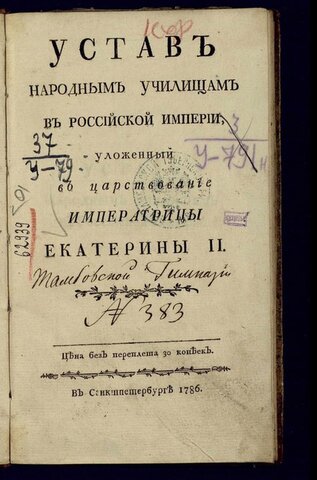 УСТАВЪ
НАРОДНЫМЪ УЧИЛИЩАМЪ
ВЪ РОССІЙСКОЙ ИМПЕРІИ,
уложенный
во царствованіе
ИМПЕРАТРИЦЫ
ЕКАТЕРИНЫ II.
37
У-79
3
У-791
62939
Тамбовской Гимназіи
N 383
Цѣна безъ переплета 30 копѣекъ.
Въ Санктпетербургѣ 1786.